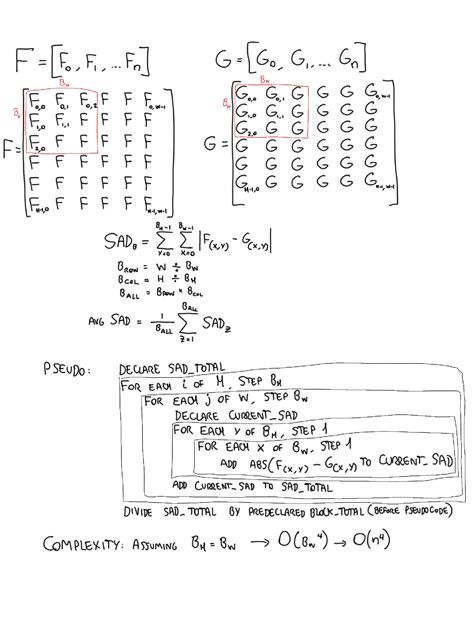 F = [F₀, F₁, ... Fₙ]
G = [G₀, G₁, ... Gₙ]
B_W
B_H
F =
F₀,₀ F₀,₁ F₀,₂ F F F₀,W-1
F₁,₀ F₁,₁ F F F F
F₂,₀ F F F F F
F F F F F F
F F F F F F
F_H-1,0 F F F F F_H-1,W-1
B_W
B_H
G =
G₀,₀ G₀,₁ G G G G₀,W-1
G₁,₀ G₁,₁ G G G G
G₂,₀ G G G G G
G G G G G G
G G G G G G
G_H-1,0 G G G G G_H-1,W-1
SAD_B = Σ_{Y=0}^{B_H-1} Σ_{X=0}^{B_W-1} |F(x,y) - G(x,y)|
B_ROW = W ÷ B_W
B_COL = H ÷ B_H
B_ALL = B_ROW × B_COL
AVG SAD = 1/B_ALL Σ_{Z=1}^{B_ALL} SAD_Z
PSEUDO: DECLARE SAD_TOTAL
FOR EACH i OF H, STEP B_H
FOR EACH j OF W, STEP B_W
DECLARE CURRENT_SAD
FOR EACH Y OF B_H, STEP 1
FOR EACH X OF B_W, STEP 1
ADD ABS(F(x,y) - G(x,y)) TO CURRENT_SAD
ADD CURRENT_SAD TO SAD_TOTAL
DIVIDE SAD_TOTAL BY PREDECLARED BLOCK_TOTAL (BEFORE PSEUDOCODE)
COMPLEXITY: ASSUMING B_H = B_W → O(B_W⁴) → O(n⁴)